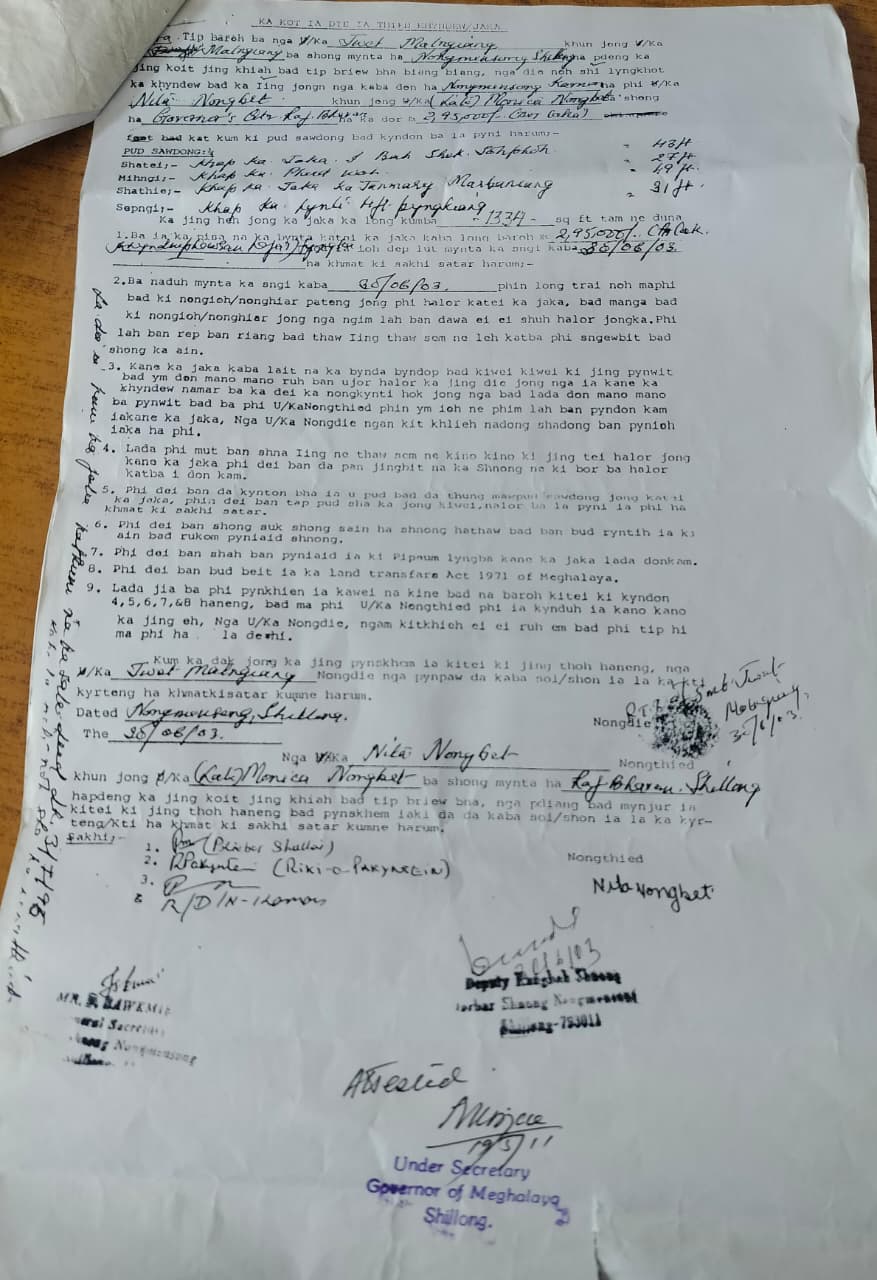 KA KOT IA DIE IA THIED KHYNDEW/JAKA
Tip baroh ba nga U/Ka Twot Malngiang khun jong U/Ka
Malngiang ba shong mynta ha Nongmensong Shillong ha pdeng ka
jing koit jing khiah bad tip briew bha biang biang, nga die noh shi lyngkhot
ka khyndew bad ka Iing jongn nga kaba don ha Nongmensong ha phi U/Ka
Nita Nongbet khun jong U/Ka (Late) Monica Nongbet ba shong
ha Governor's Qtr Raj Bhavan ha ka dor 2,95,000/-
bad kat kum ki pud sawdong bad kyndon ba la pyni harum;-
PUD SAWDONG:-
Shatei;- Khap ka Jaka I Bah Shek Tohphoh - 43 ft
Mihngi;- Khap ka - 27 ft
- 49 ft.
Shathie;- Khap ka Jaka ka Marbaniang - 31 ft.
Sepngi;- Khap ka lynti 4ft pyngkiang
Ka jing heh jong ka jaka ka long kumba - 1334 - sq ft tam ne duna
1.Ba ia ka pisa na ka bynta katei ka jaka kaba long baroh 2,95,000/-
ioh dep lut mynta ka sngi kaba 30/06/03.
ha khmat ki sakhi satar harum;-
2.Ba naduh mynta ka sngi kaba 30/06/03. phin long trai noh maphi
bad ki nongioh/nonghiar pateng jong phi halor katei ka jaka, bad manga bad
ki nongioh/nonghiar jong nga ngim lah ban dawa ei ei shuh halor jongka.Phi
lah ban rep ban riang bad thaw Iing thaw sem ne leh katba phi sngewbit bad
shong ka ain.
3. Kane ka jaka kaba lait na ka bynda byndop bad kiwei kiwei ki jing pynwit
bad ym don mano mano ruh ban ujor halor ka jing die jong nga ia kane ka
khyndew namar ba ka dei ka nongkynti hok jong nga bad lada don mano mano
ba pynwit bad ba phi U/KaNongthied phin ym ioh ne phim lah ban pyndon kam
iakane ka jaka, Nga U/Ka Nongdie ngan kit khlieh nadong shadong ban pynioh
iaka ha phi.
4. Lada phi mut ban shna Iing ne thaw sem ne kino kino ki jing tei halor jong
kane ka jaka phi dei ban da pan jingbit na ka Shnong ne ki bor ba halor
katba i don kam.
5. Phi dei ban da kynton bha ia u pud bad da thung mawpud sawdong jong katei
ka jaka, phin dei ban tap pud sha ka jong kiwei,halor ba la pyni ia phi ha
khmat ki sakhi satar.
6. Phi dei ban shong suk shong sain ha shnong hathaw bad ban bud ryntih ia ki
ain bad rukom pyniaid shnong.
7. Phi dei ban shah ban pyniaid ia ki Pipeum lyngba kane ka jaka lada donkam.
8. Phi dei ban bud beit ia ka land transfare Act 1971 of Meghalaya.
9. Lada jia ba phi pynkhien ia kawei na kine bad na baroh kitei ki kyndon
4,5,6,7,&8 haneng, bad ma phi U/Ka Nongthied phi ia kynduh ia kano kano
ka jing eh, Nga U/Ka Nongdie, ngam kitkhieh ei ei ruh em bad phi tip hi
ma phi ha la deshi.
Kum ka dak jong ka jing pynskhem ia kitei ki jing thoh haneng, nga
U/Ka Twot Malngiang Nongdie nga pynpaw da kaba soi/shon ia la ka kti
kyrteng ha khmatkisatar kumne harum.
Dated Nongmensong, Shillong.
The 30/06/03.
Nongdie
30/6/03.
Nga U/Ka Nita Nongbet Nongthied
khun jong U/Ka (Late) Monica Nongbet ba shong mynta ha Raj Bhavan, Shillong
hapdeng ka jing koit jing khiah bad tip briew bha, nga pdiang bad mynjur ia
kitei ki jing thoh haneng bad pynskhem iaki da da kaba soi/shon ia la ka kyr-
teng/Kti ha khmat ki sakhi satar kumne harum.
Sakhi;-
1. (Blister Shullai)
2. RPakyntein (RIKI-O-PAKYNTEIN)
3.
&
Nongthied
Nita Nongbet
30/6/03
Deputy Rangbah Shnong
Dorbar Shnong Nongmensong
Shillong-793011
General Secretary
Shnong Nongmensong
Attested
19/5/11
Under Secretary
Governor of Meghalaya
Shillong.